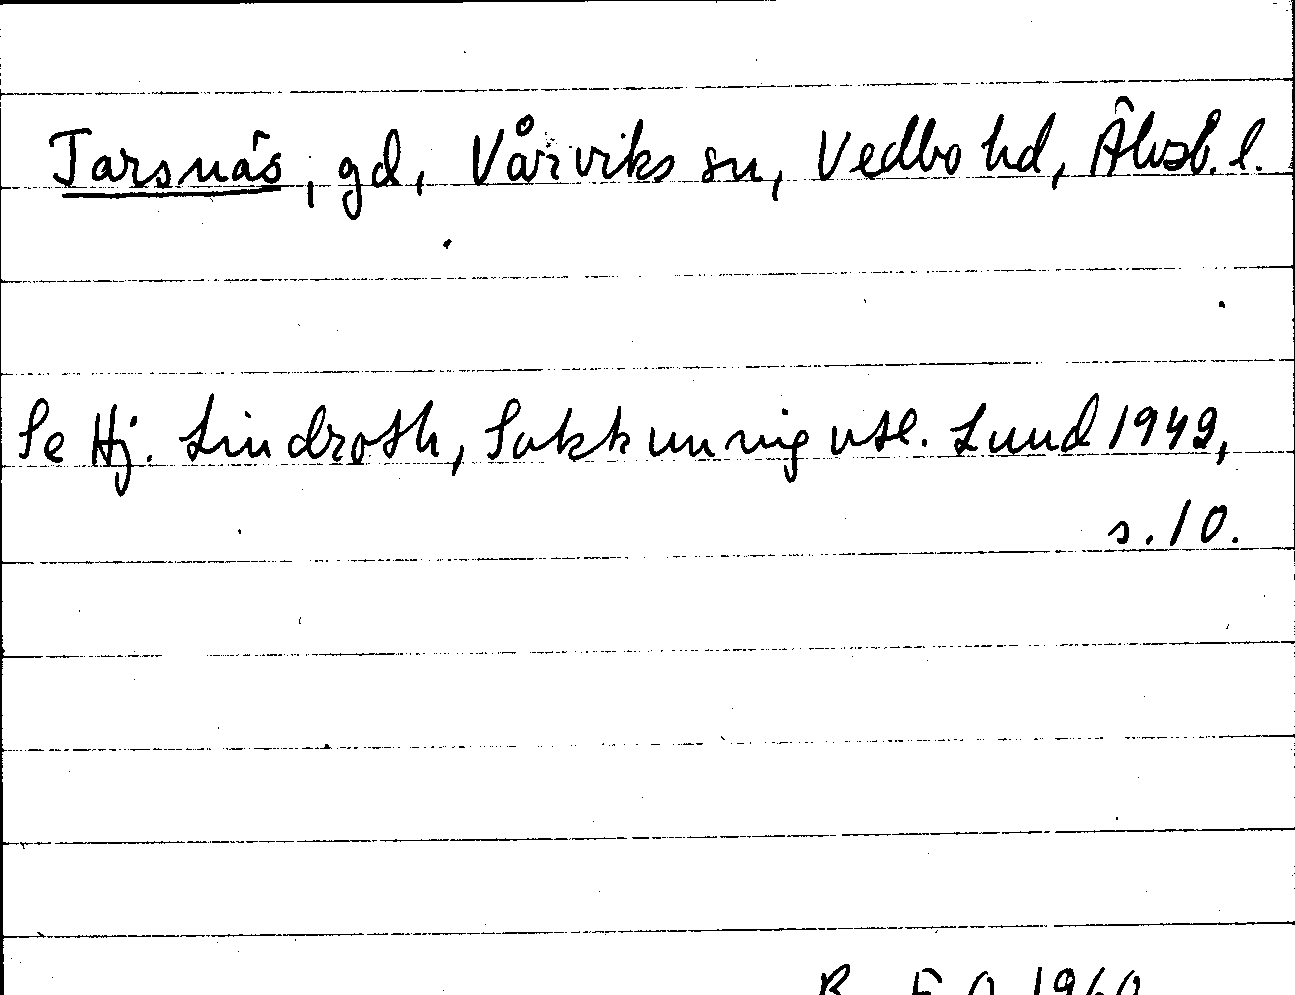 Tarsnäs, gd, Vårviks sn, Vedbo hd, Älvsb. l.
Se Hj. Lindroth, Sakkunnig utl. Lund 1949,
s. 10.
1960